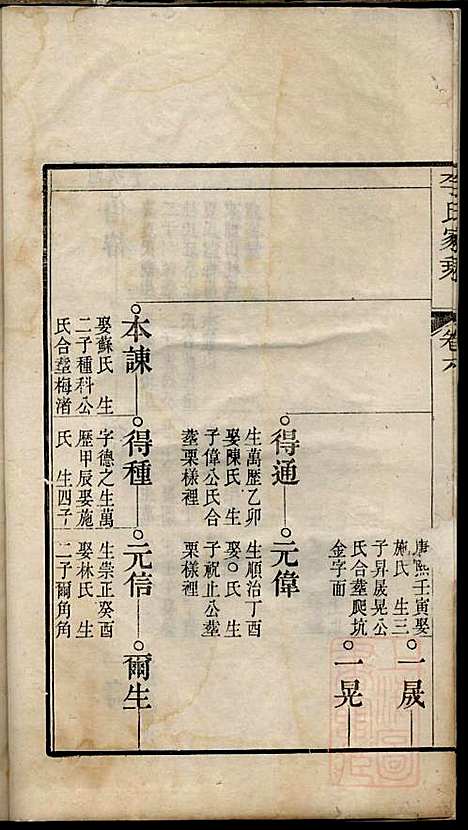 李氏家球
卷六
康熙壬寅娶
施氏 生三
子昇晟晃公
氏合塟爬坑
金字面
一晟
一晃
得通
生萬歷乙卯
娶陳氏 生
子偉公氏合
塟栗樣裡
元偉
生順治丁酉
娶○氏 生
子祝止公塟
栗樣裡
本諌
娶蘇氏 生
二子種科公
氏合塟梅渚
得種
字德之生萬
歷甲辰娶施
氏 生四子
元信
生崇正癸酉
娶林氏 生
二子爾角角
爾生